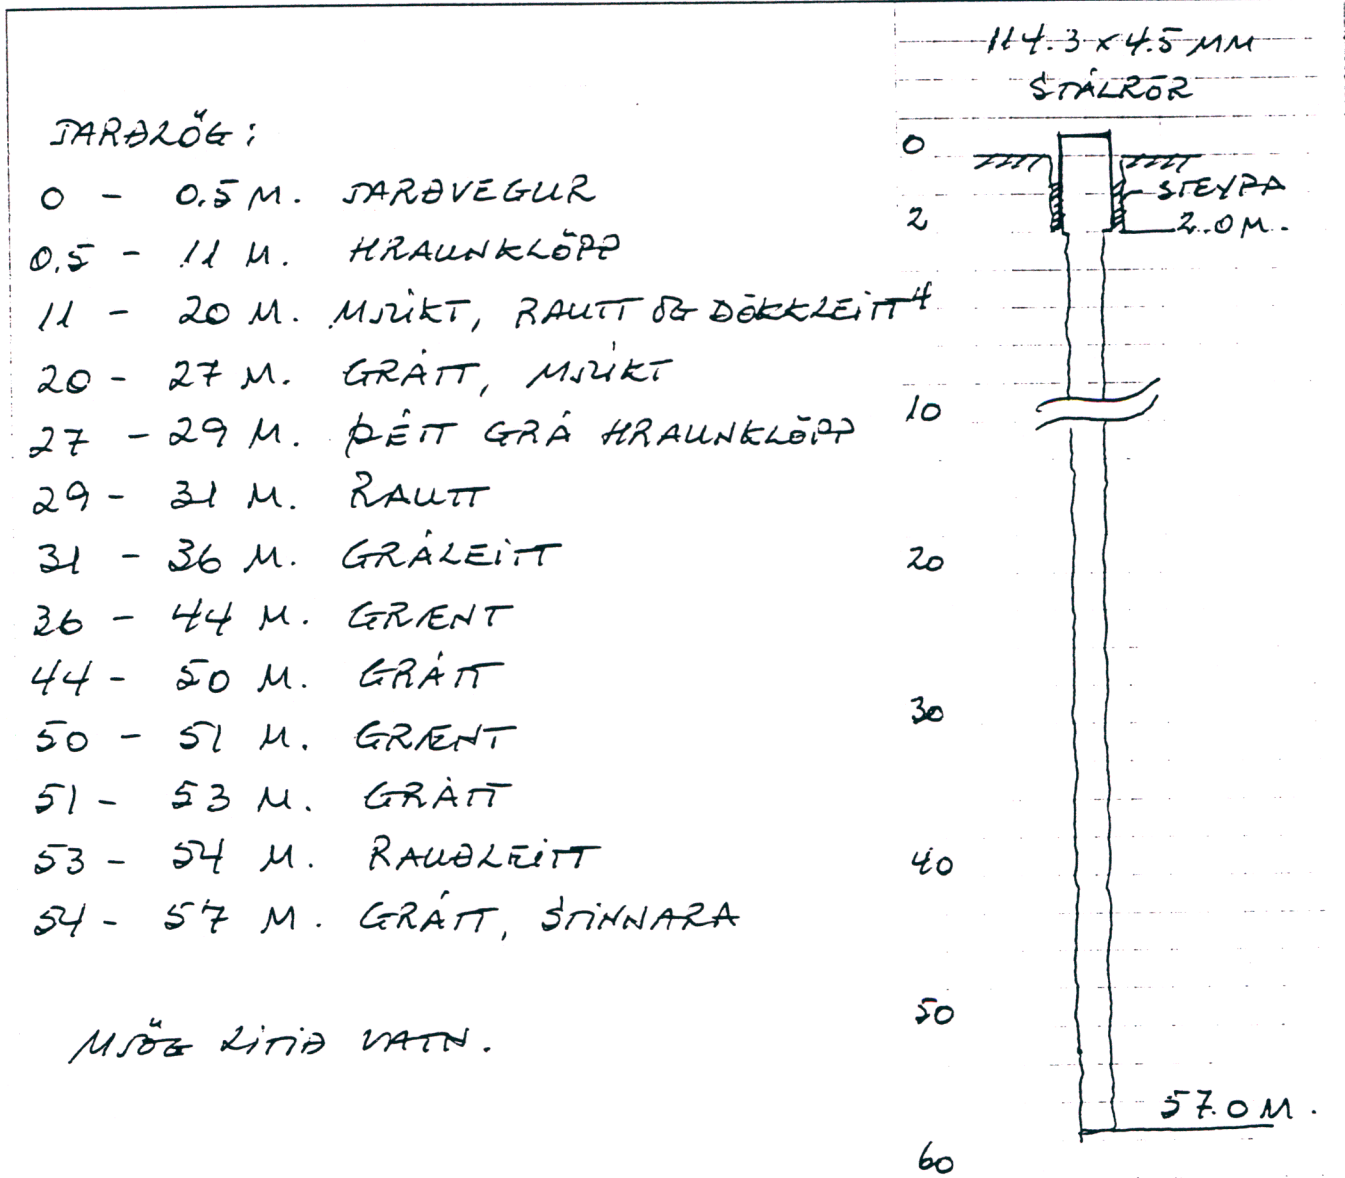 JARÐLÖG:
0 - 0.5 M. JARÐVEGUR
0.5 - 11 M. HRAUNKLÖPP
11 - 20 M. MJÚKT, RAUTT OG DÖKKLEITT
20 - 27 M. GRÁTT, MJÚKT
27 - 29 M. ÞÉTT GRÁ HRAUNKLÖPP
29 - 31 M. RAUTT
31 - 36 M. GRÁLEITT
36 - 44 M. GRÆNT
44 - 50 M. GRÁTT
50 - 51 M. GRÆNT
51 - 53 M. GRÁTT
53 - 54 M. RAUÐLEITT
54 - 57 M. GRÁTT, STINNARA
MJÖG LÍTIÐ VATN.
114.3 x 4.5 MM
STÁLRÖR
0
STEYPA
2
2.0 M.
4
10
20
30
40
50
57.0 M.
60